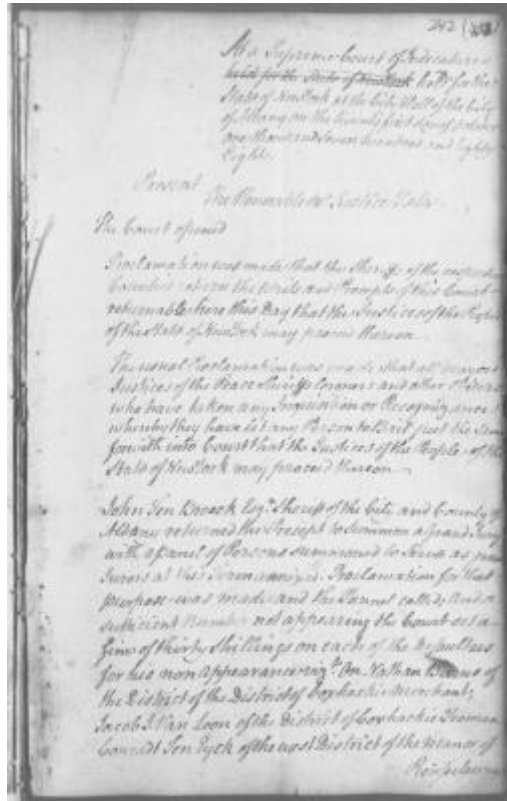 242
At a Supreme Court of Judicature
held for the State of New York held for the
State of New York at the City Hall of the City
of Albany on the twenty first day of October
one thousand seven hundred and Eighty
Eight.
Present
The Honorable Mr Justice
The Court opened
Proclamation was made that the Sheriffs of the
Counties return the Writs and Precepts of this Court
returnable here this Day that the Justices of the People
of the State of New York may proceed thereon
The usual Proclamation was made that all
Justices of the Peace Sheriffs Coroners and other Officers
who have taken any Inquisition or Recognizance
whereby they have let any Person to Bail put the same
forwith into Court that the Justices of the People of the
State of New York may proceed thereon
John Ten Broeck Esqr. Sheriff of the City and County of
Albany returned the Precept to Summon a Grand Jury
with a Panel of Persons summoned to serve as
Jurors at this Term annexed. Proclamation for that
purpose was made and the Pannel called and a
sufficient Number not appearing the Court set a
Fine of thirty Shillings on each of the Defaulters
for his non appearance vizt. On Nathan of
the District of the District of Coxhackie Merchant,
Jacob J. Van Loon of the District of Coxhackie Yeoman
Conradt Ten Eyck of the East District of the Manor of
Renselaer